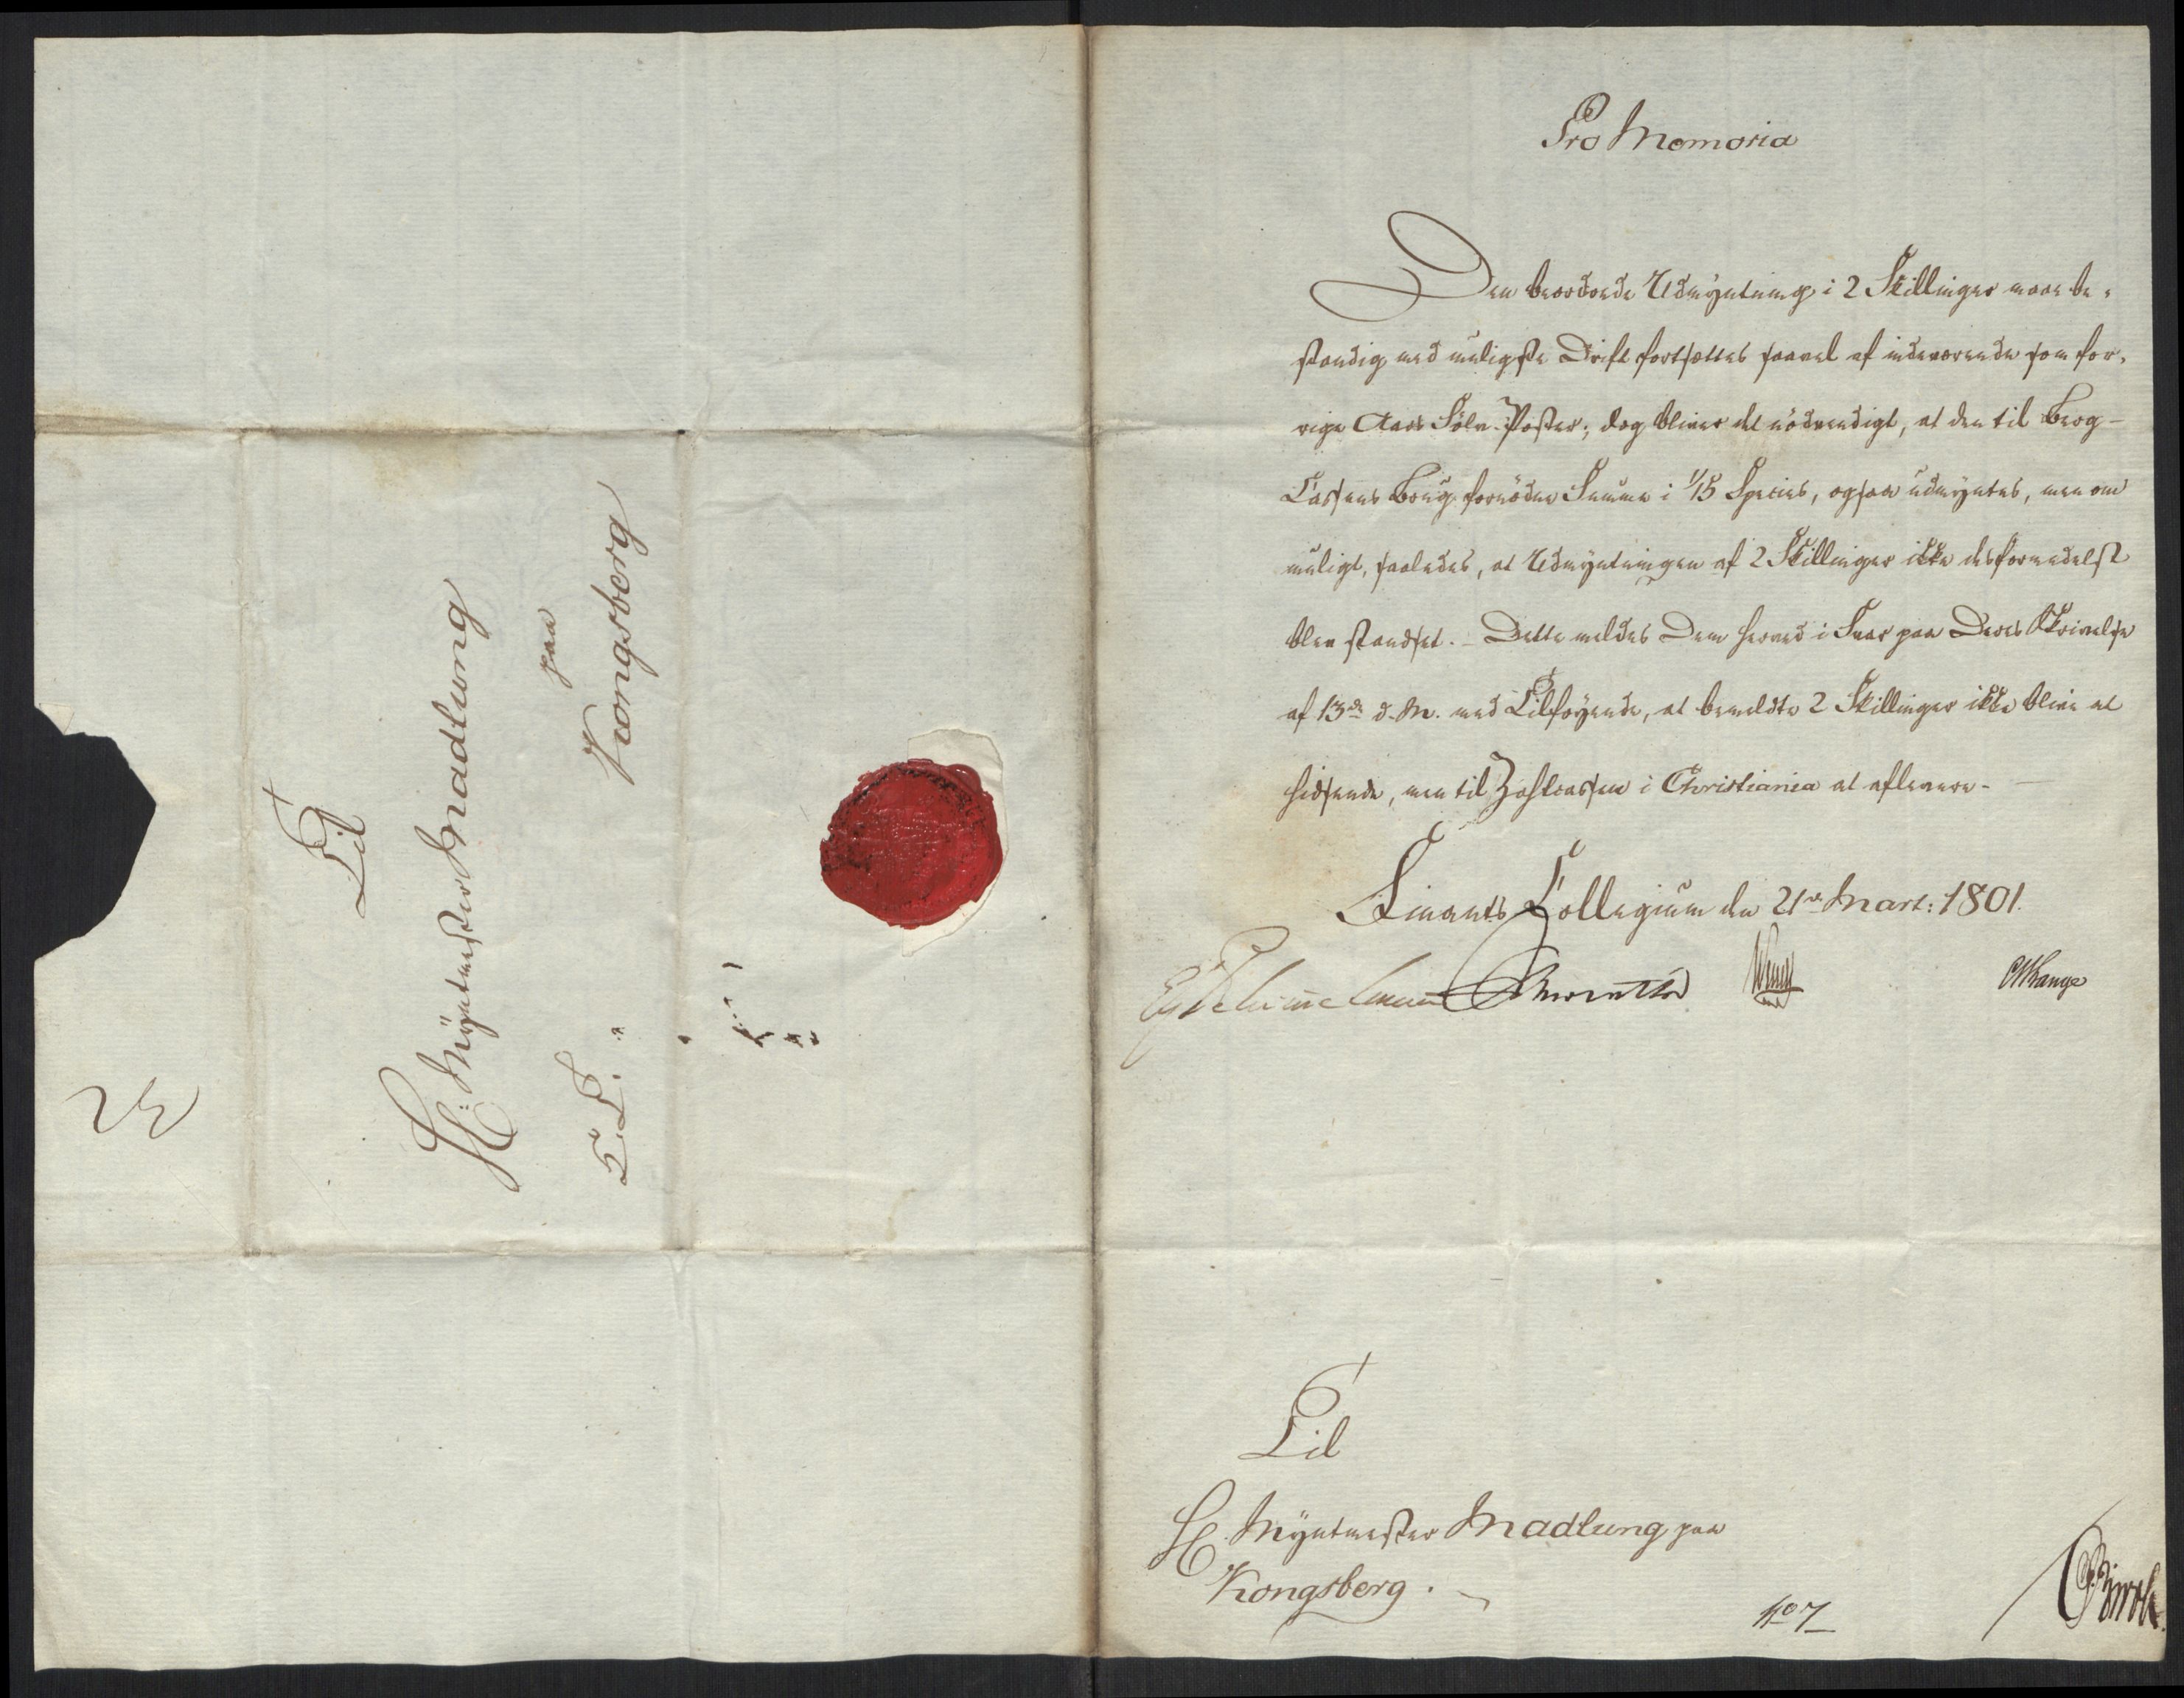 Til
H: Myntmester Madlung
paa
Kongsberg
Pro Memoria
Den beordrede Udmyntning i 2 Skillinger maae be-
standig med muligste Drift fortsættes saavel af indeværende som for-
rige Aars Sölv-Poster; dog bliver det nödvendigt, at den til Berg-
Cassens Brug fornödne Summa i 1/15 Species, ogsaa udmyntes, men om
muligt, saaledes, at Udmyntningen af 2 Skillinger ikke desformedelst
blev standset. - Dette meldes Dem herved i Svar paa Deres Skrivelse
af 13de d. M. med Tilföyende, at bemeldte 2 Skillinger ikke blive at
hidsende, men til Zahlcassen i Christiania at aflevere.
Finants Collegium den 21de Mart: 1801.
Til
H. Myntmester Madlung paa
Kongsberg.
No 7